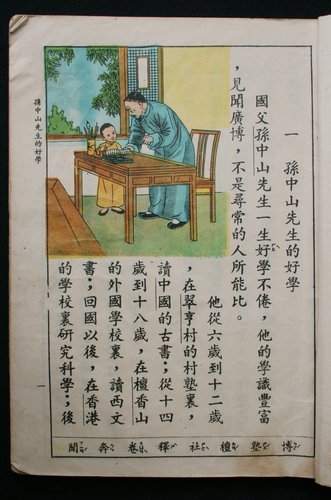 一　孫中山先生的好學
國父孫中山先生一生好學不倦，他的學識豐富
，見聞廣博，不是尋常的人所能比。
他從六歲到十二歲
，在翠亨村的村塾裏，
讀中國的古書；從十四
歲到十八歲，在檀香山
的外國學校裏，讀西文
書；回國以後，在香港
的學校裏研究科學；後
孫中山先生的好學
一
博 塾 檀 社 釋 卷 奔 聞